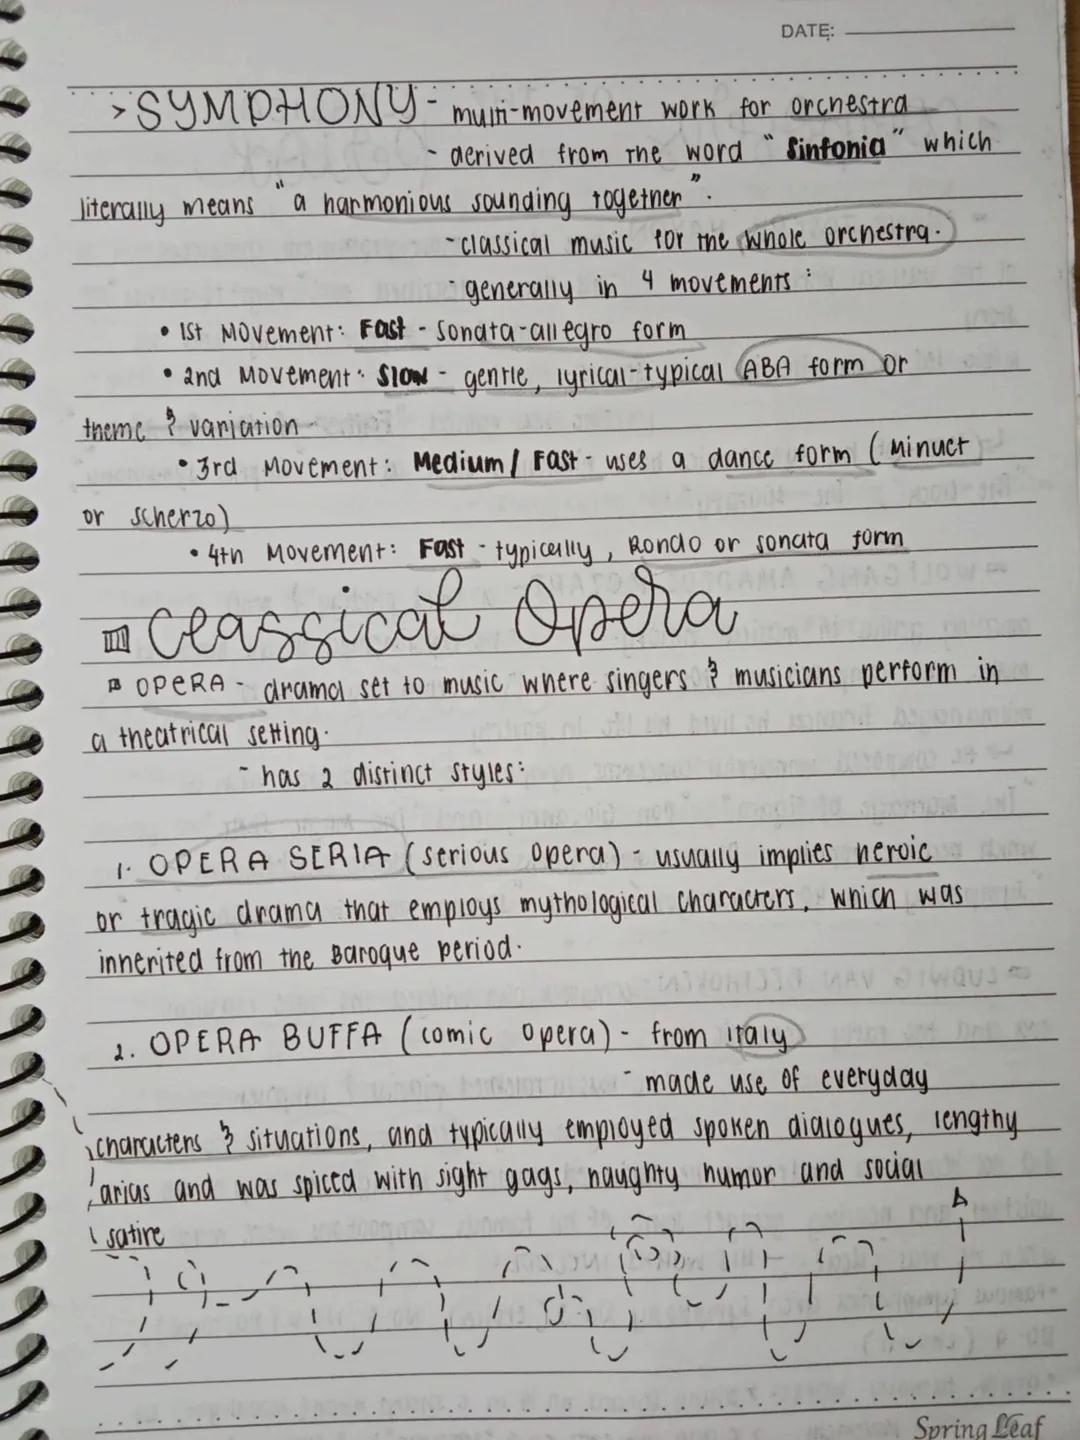 DATE:
> SYMPHONY - multi-movement work for orchestra
- derived from the word "Sinfonia" which
literally means "a harmonious sounding together".
- classical music for the whole orchestra.
- generally in 4 movements:
• 1st Movement: Fast - Sonata-allegro form
• 2nd Movement: Slow - gentle, lyrical-typical ABA form or
theme & variation
• 3rd Movement: Medium/Fast - uses a dance form (Minuet
or scherzo)
• 4th Movement: Fast - typically, Rondo or sonata form
Classical Opera
OPERA - drama set to music where singers & musicians perform in
a theatrical setting.
- has 2 distinct styles:
1. OPERA SERIA (serious opera) - usually implies heroic
or tragic drama that employs mythological characters, which was
inherited from the Baroque period.
2. OPERA BUFFA (comic opera) - from Italy
- made use of everyday
characters & situations, and typically employed spoken dialogues, lengthy
arias and was spiced with sight gags, naughty humor and social
satire
Spring Leaf